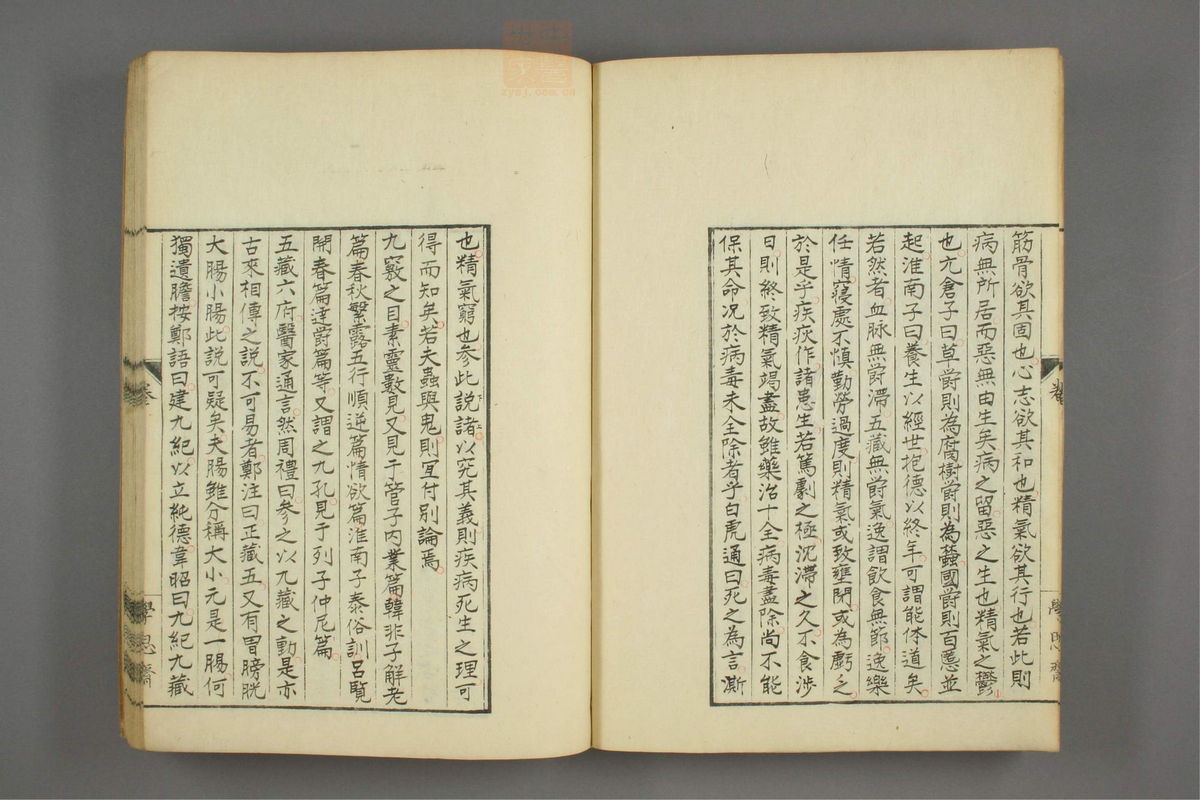 筋骨欲其固也心志欲其和也精氣欲其行也若此則
病無所居而惡無由生矣病之留惡之生也精氣之鬱
也亢倉子曰草欝則為腐樹欝則為蠧國欝則百慝並
起淮南子曰養生以經世抱德以終年可謂能体道矣
若然者血脉無欝滯五藏無欝氣逸謂飲食無節逸樂
任情寢處不慎勤勞過度則精氣或致壅閉或為虧之
於是乎疾疢作諸患生若篤劇之極沈滯之久不食涉
日則終致精氣竭盡故雖藥治十全病毒盡除尚不能
保其命况於病毒未全除者乎白虎通曰死之為言澌
也精氣窮也參此説諸以究其義則疾病死生之理可
得而知矣若夫蟲與鬼則宜付別論焉
九竅之目素靈數見又見于管子內業篇韓非子解老
篇春秋繁露五行順逆篇情欲篇淮南子泰俗訓呂覧
開春篇達欝篇等又謂之九孔見于列子仲尼篇
五藏六府醫家通言然周禮曰參之以九藏之動是亦
古來相傳之説不可易者鄭注曰正藏五又有胃膀胱
大膓小膓此説可疑矣夫膓雖分稱大小元是一膓何
獨遺膽按鄭語曰建九紀以立純德韋昭曰九紀九藏
學思齋
zysj.com.cn